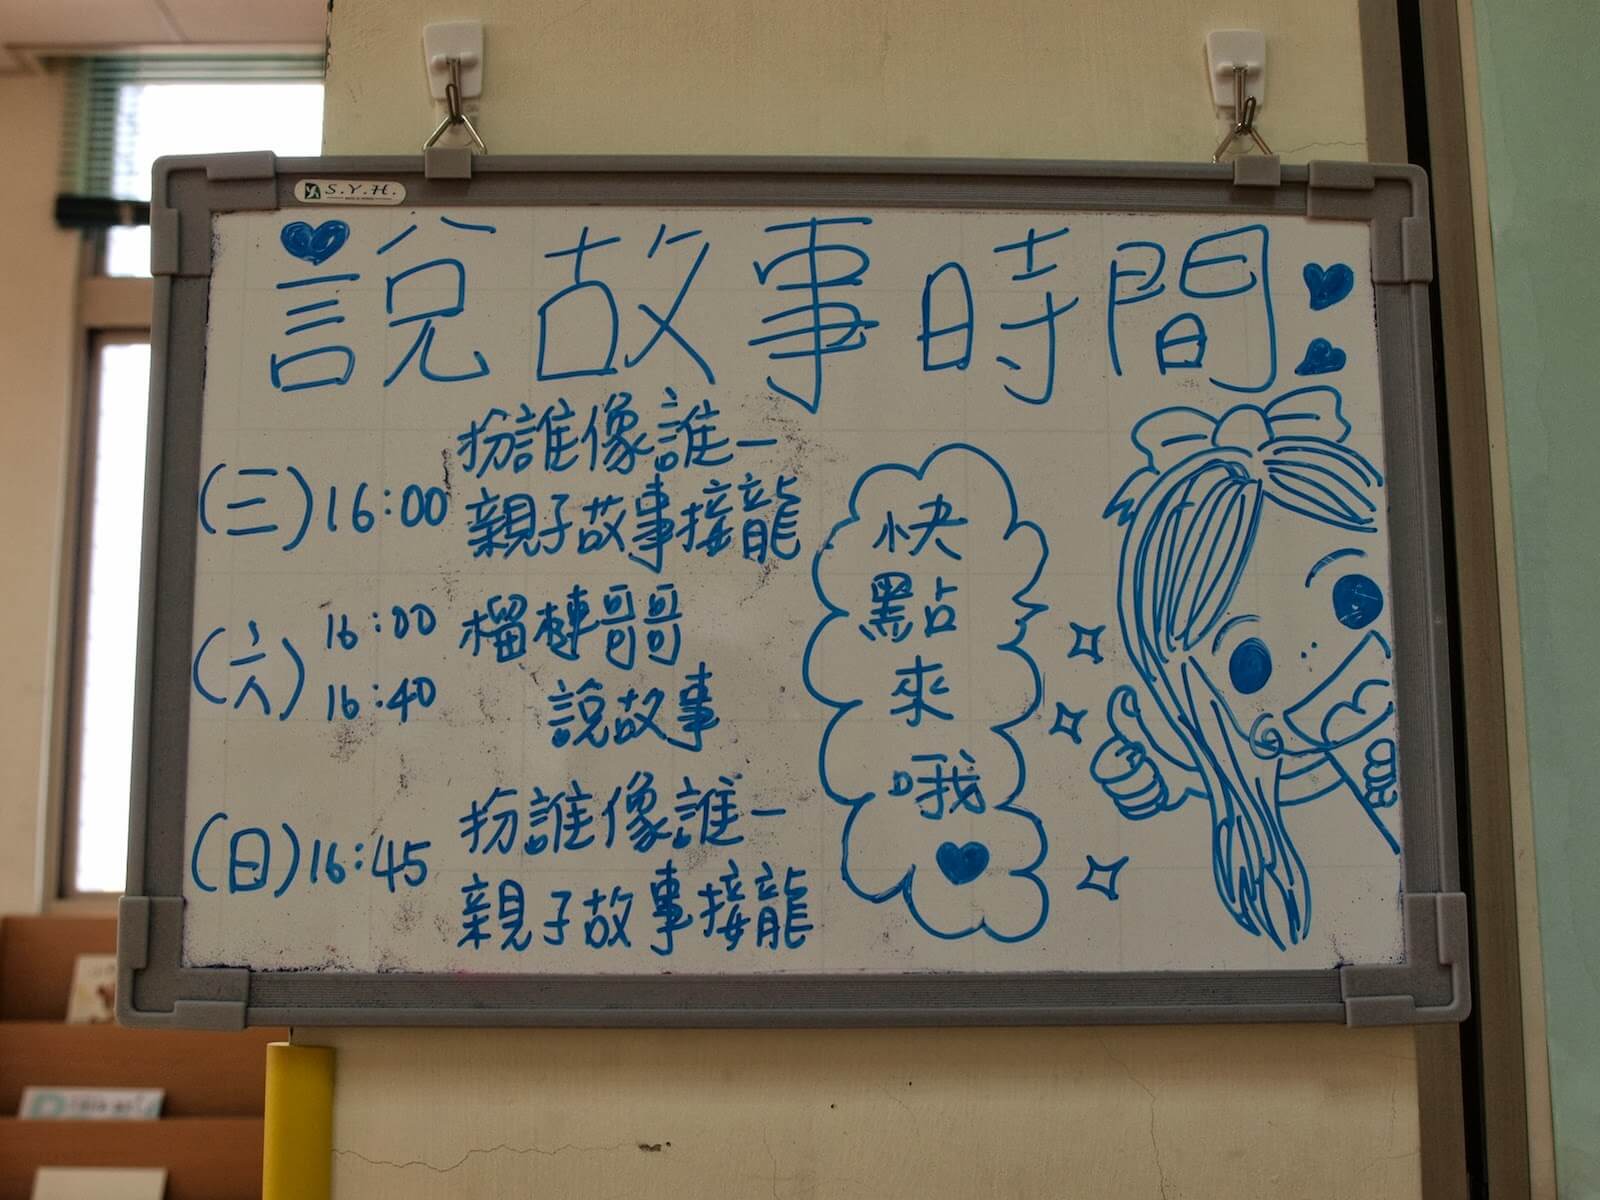 S.Y.H.
說故事時間
(三) 16:00 扮誰像誰—
親子故事接龍
(六) 16:00 榴槤哥哥
16:40 說故事
(日) 16:45 扮誰像誰—
親子故事接龍
快
點
來
哦